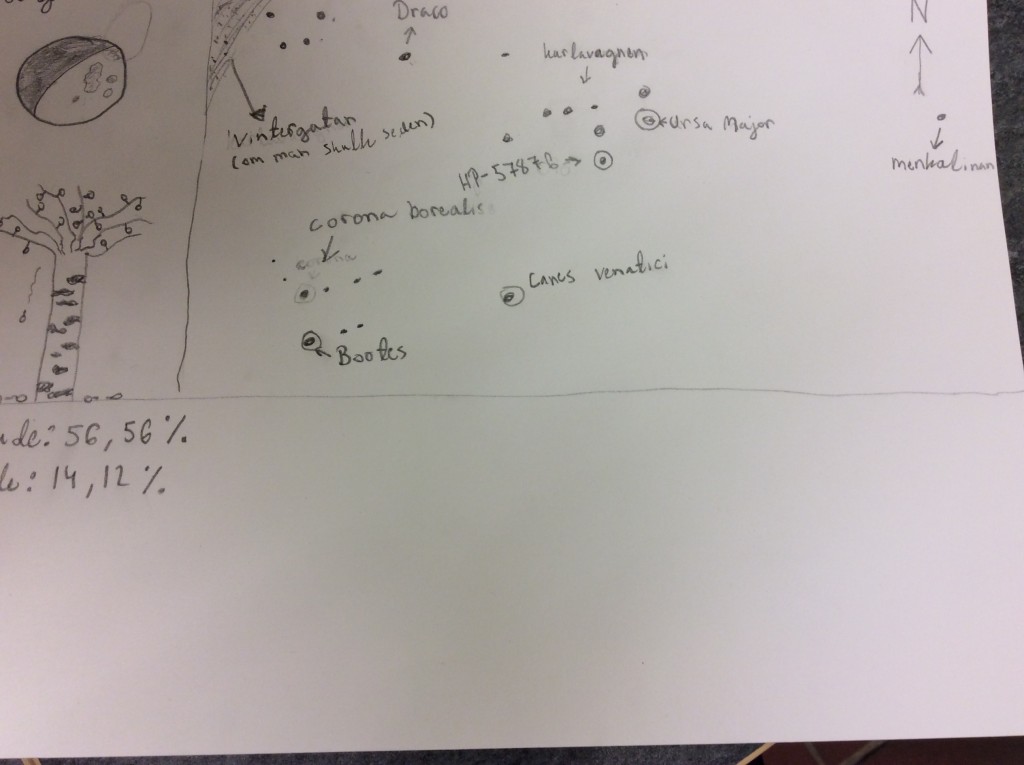 Draco
N
karlavagnen
Vintergatan
(om man skulle se den)
Ursa Major
HP-57876
menkalinan
corona borealis
Canes venatici
Bootes
ude: 56,56 %
de: 14,12 %